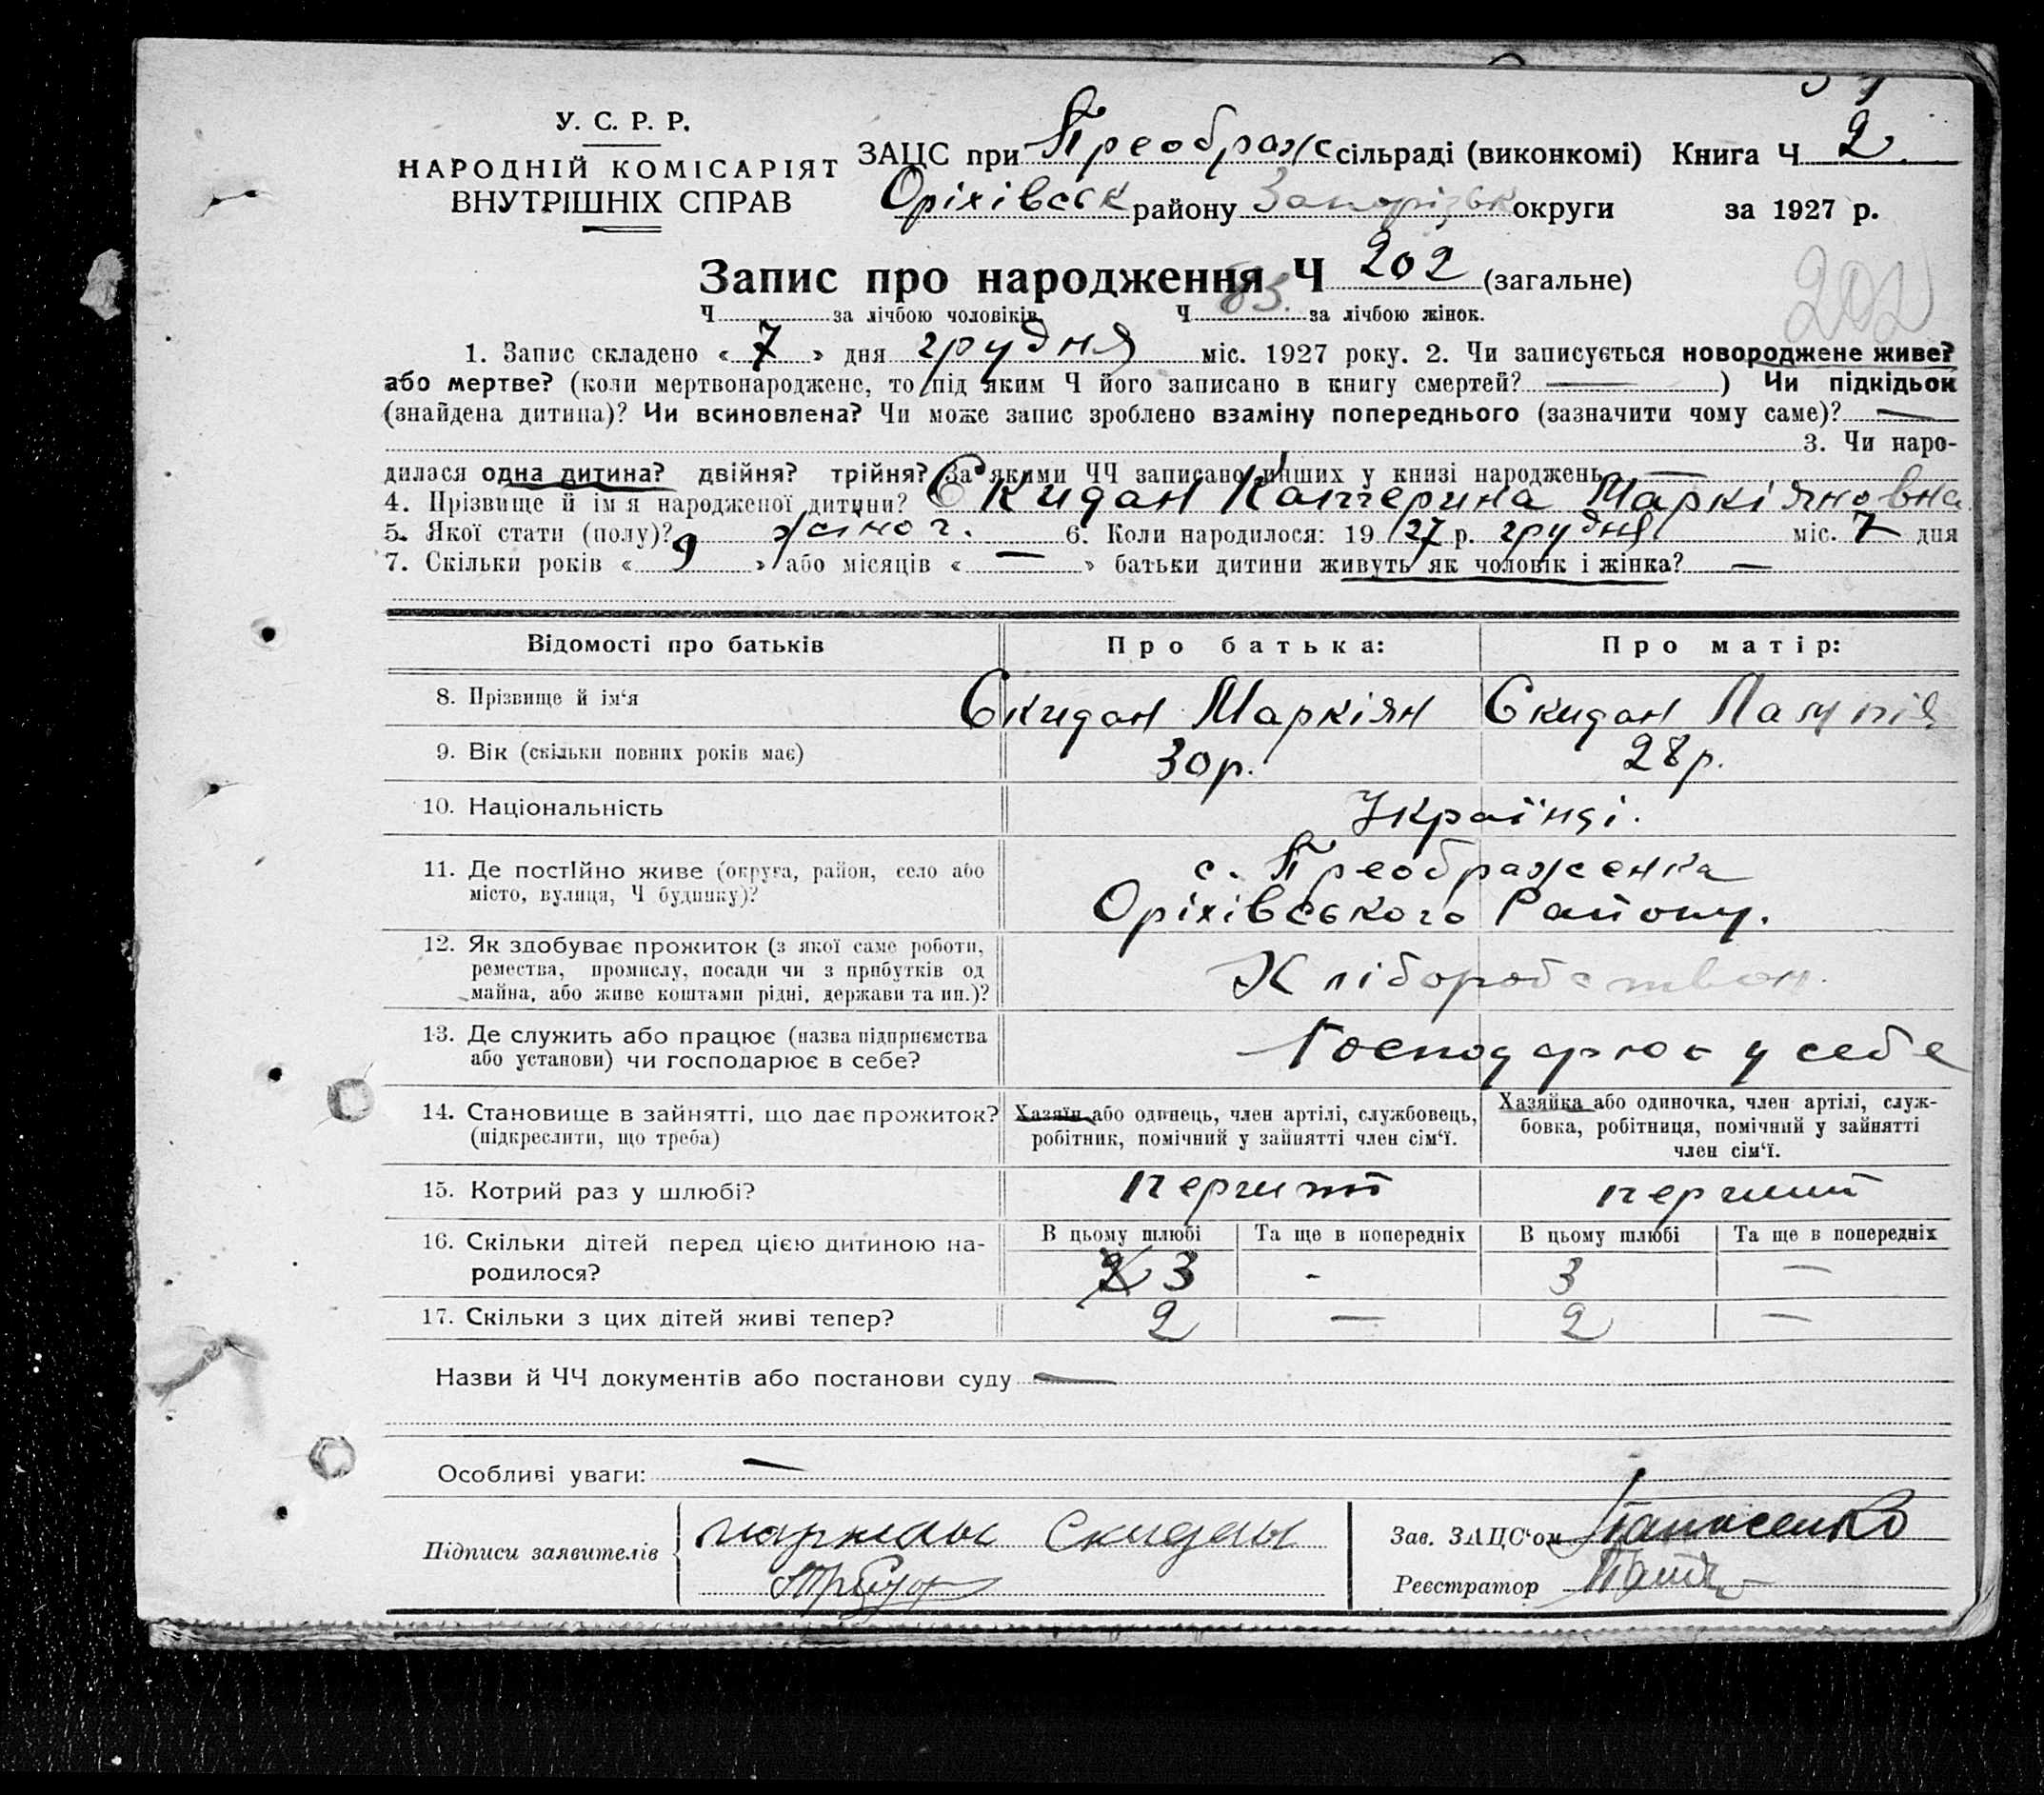 У. С. Р. Р.
НАРОДНІЙ КОМІСАРІЯТ
ВНУТРІШНІХ СПРАВ
ЗАЦС при Преображ сільраді (виконкомі) Книга Ч 2
Оріхівськ району Запорізьк округи за 1927 р.
Запис про народження Ч 202 (загальне)
202
Ч за лічбою чоловіків. Ч 83. за лічбою жінок.
1. Запис складено « 7 » дня грудня міс. 1927 року. 2. Чи записується новороджене живе?
або мертве? (коли мертвонароджене, то під яким Ч його записано в книгу смертей? — ) Чи підкідьок
(знайдена дитина)? Чи всиновлена? Чи може запис зроблено взаміну попереднього (зазначити чому саме)? —
3. Чи наро-
дилася одна дитина? двійня? трійня? За якими ЧЧ записано инших у книзі народжень —
4. Прізвище й ім'я народженої дитини? Скидан Катерина Маркіяновна
5. Якої стати (полу)? жіноч. 6. Коли народилося: 1927 р. грудня міс. 7 дня
7. Скільки років « 9 » або місяців « — » батьки дитини живуть як чоловік і жінка? —
Відомості про батьків Про батька: Про матір:
8. Прізвище й ім‘я Скидан Маркіян Скидан
9. Вік (скільки повних років має) 30р. 28р.
10. Національність Українці.
11. Де постійно живе (округа, район, село або
місто, вулиця, Ч будинку)?
с. Преображенка
Оріхівського Району.
12. Як здобуває прожиток (з якої саме роботи,
ремества, промислу, посади чи з прибутків од
майна, або живе коштами рідні, держави та ин.)?
Хліборобством.
13. Де служить або працює (назва підприємства
або установи) чи господарює в себе?
Господарює у себе
14. Становище в зайнятті, що дає прожиток?
(підкреслити, що треба)
Хазяїн або одинець, член артілі, службовець,
робітник, помічний у зайнятті член сім‘ї.
Хазяйка або одиночка, член артілі, служ-
бовка, робітниця, помічний у зайнятті
член сім‘ї.
15. Котрий раз у шлюбі? перший перший
16. Скільки дітей перед цією дитиною на-
родилося?
В цьому шлюбі Та ще в попередніх В цьому шлюбі Та ще в попередніх
2 3 - 3 —
17. Скільки з цих дітей живі тепер? 2 — 2 —
Назви й ЧЧ документів або постанови суду —
Особливі уваги: —
Підписи заявителів Скидан
Зав. ЗАЦС‘ом Панасенко
Реєстратор